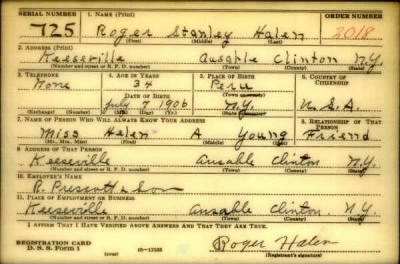 SERIAL NUMBER 1. NAME (Print) ORDER NUMBER
725 Roger Stanley Halen 2018
(First) (Middle) (Last)
2. ADDRESS (Print)
Keeseville Ausable Clinton N.Y.
(Number and street or R. F. D. number) (Town) (County) (State)
3. TELEPHONE 4. AGE IN YEARS 5. PLACE OF BIRTH 6. COUNTRY OF CITIZENSHIP
None 34 Peru
DATE OF BIRTH (Town or county)
July 7 1906 N.Y. U.S.A.
(Exchange) (Number) (Mo.) (Day) (Yr.) (State or country)
7. NAME OF PERSON WHO WILL ALWAYS KNOW YOUR ADDRESS 8. RELATIONSHIP OF THAT PERSON
Miss Helen A Young Friend
(Mr., Mrs., Miss) (First) (Middle) (Last)
9. ADDRESS OF THAT PERSON
Keeseville Ausable Clinton N.Y.
(Number and street or R. F. D. number) (Town) (County) (State)
10. EMPLOYER'S NAME
R. Prescott & Son
11. PLACE OF EMPLOYMENT OR BUSINESS
Keeseville Ausable Clinton. N.Y.
(Number and street or R. F. D. number) (Town) (County) (State)
I AFFIRM THAT I HAVE VERIFIED ABOVE ANSWERS AND THAT THEY ARE TRUE.
REGISTRATION CARD
D. S. S. FORM 1 (over) 16-17105 Roger Halen
(Registrant's signature)